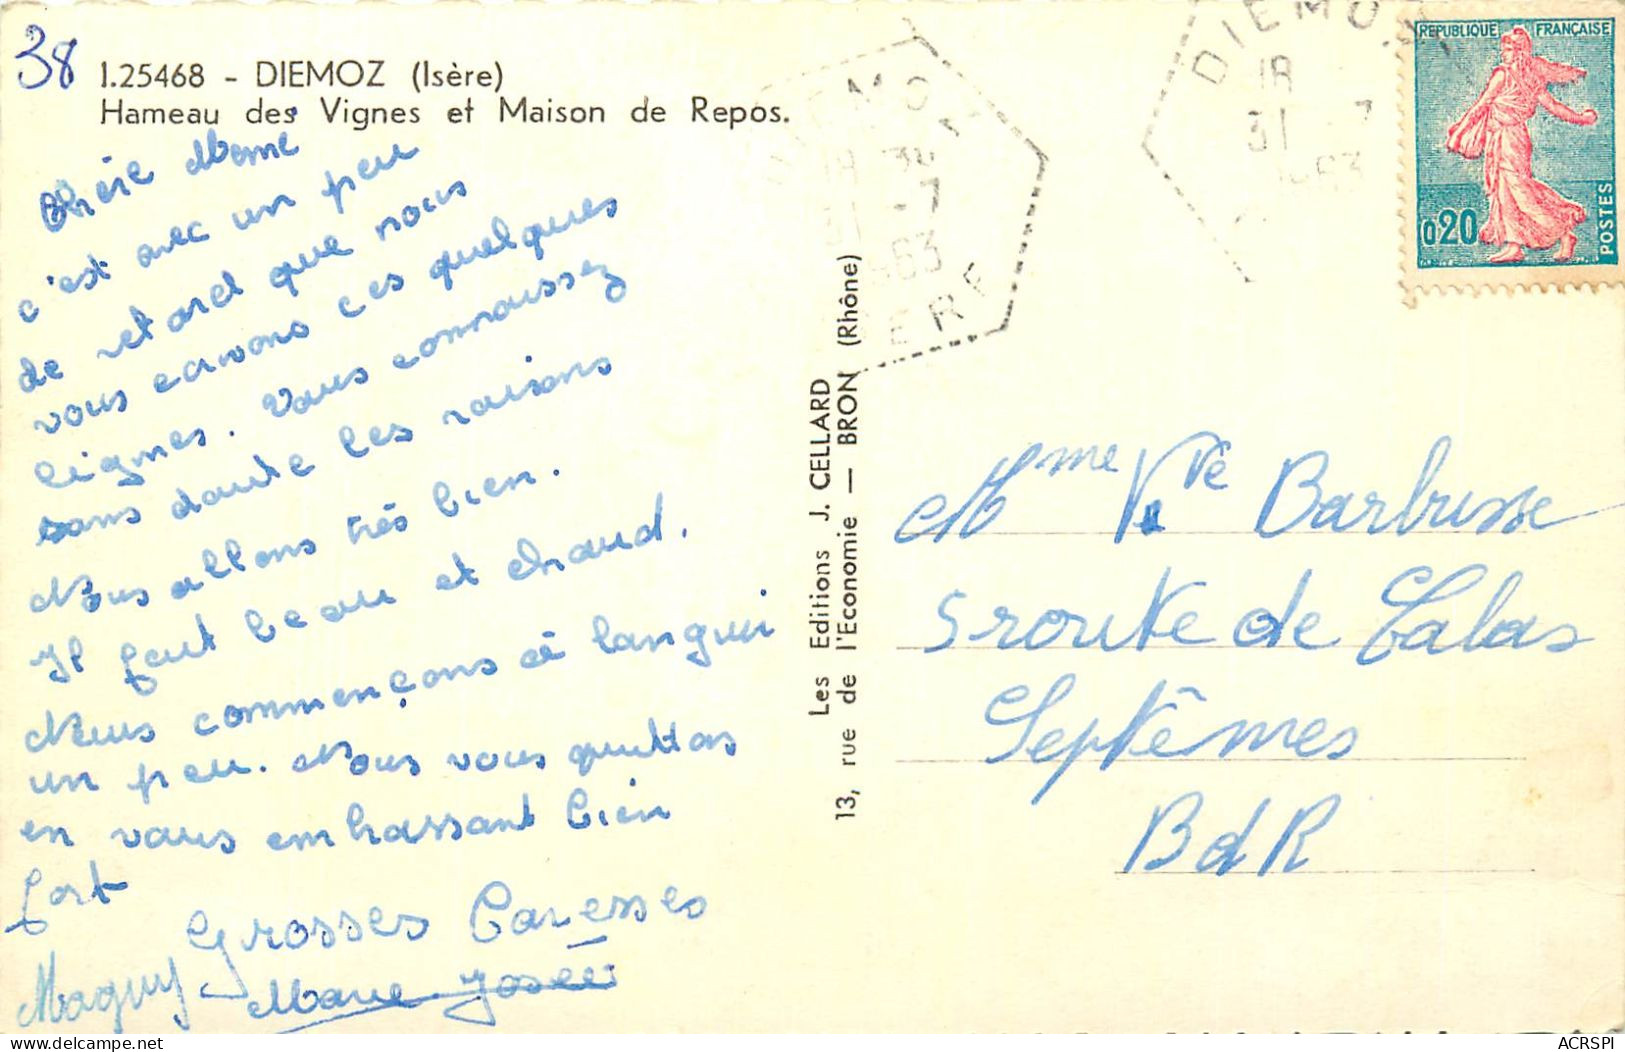 38
I.25468 - DIEMOZ (Isère)
Hameau des Vignes et Maison de Repos.
Chère Meme
c'est avec un peu
de retard que nous
vous ecrivons ces quelques
lignes. Vous connaissez
sans doute les raisons
Nous allons très bien.
Il fait beau et chaud.
Nous commençons à languir
un peu. Nous vous quittons
en vous embrassant bien
fort
Grosses Caresses
Maguy
Marie-Josée
Les Editions J. CELLARD
13, rue de l'Economie — BRON (Rhône)
DIEMOZ
18
31 -7
1963
ISERE
DIEMOZ
18
31 7
1963
REPUBLIQUE FRANÇAISE
0,20
POSTES
Mme Vve Barbusse
5 route de Calas
Septêmes
BdR
ACRSPI